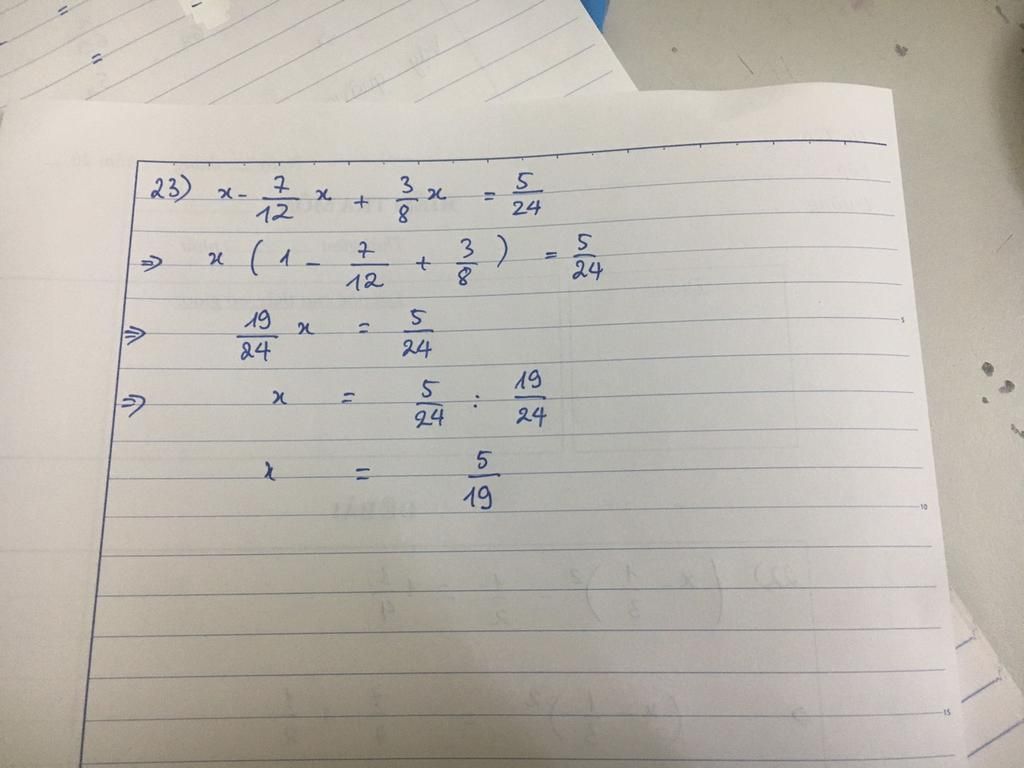 23) x - 7/12 x + 3/8 x = 5/24
=> x ( 1 - 7/12 + 3/8 ) = 5/24
=> 19/24 x = 5/24
=> x = 5/24 : 19/24
x = 5/19
5
10
15